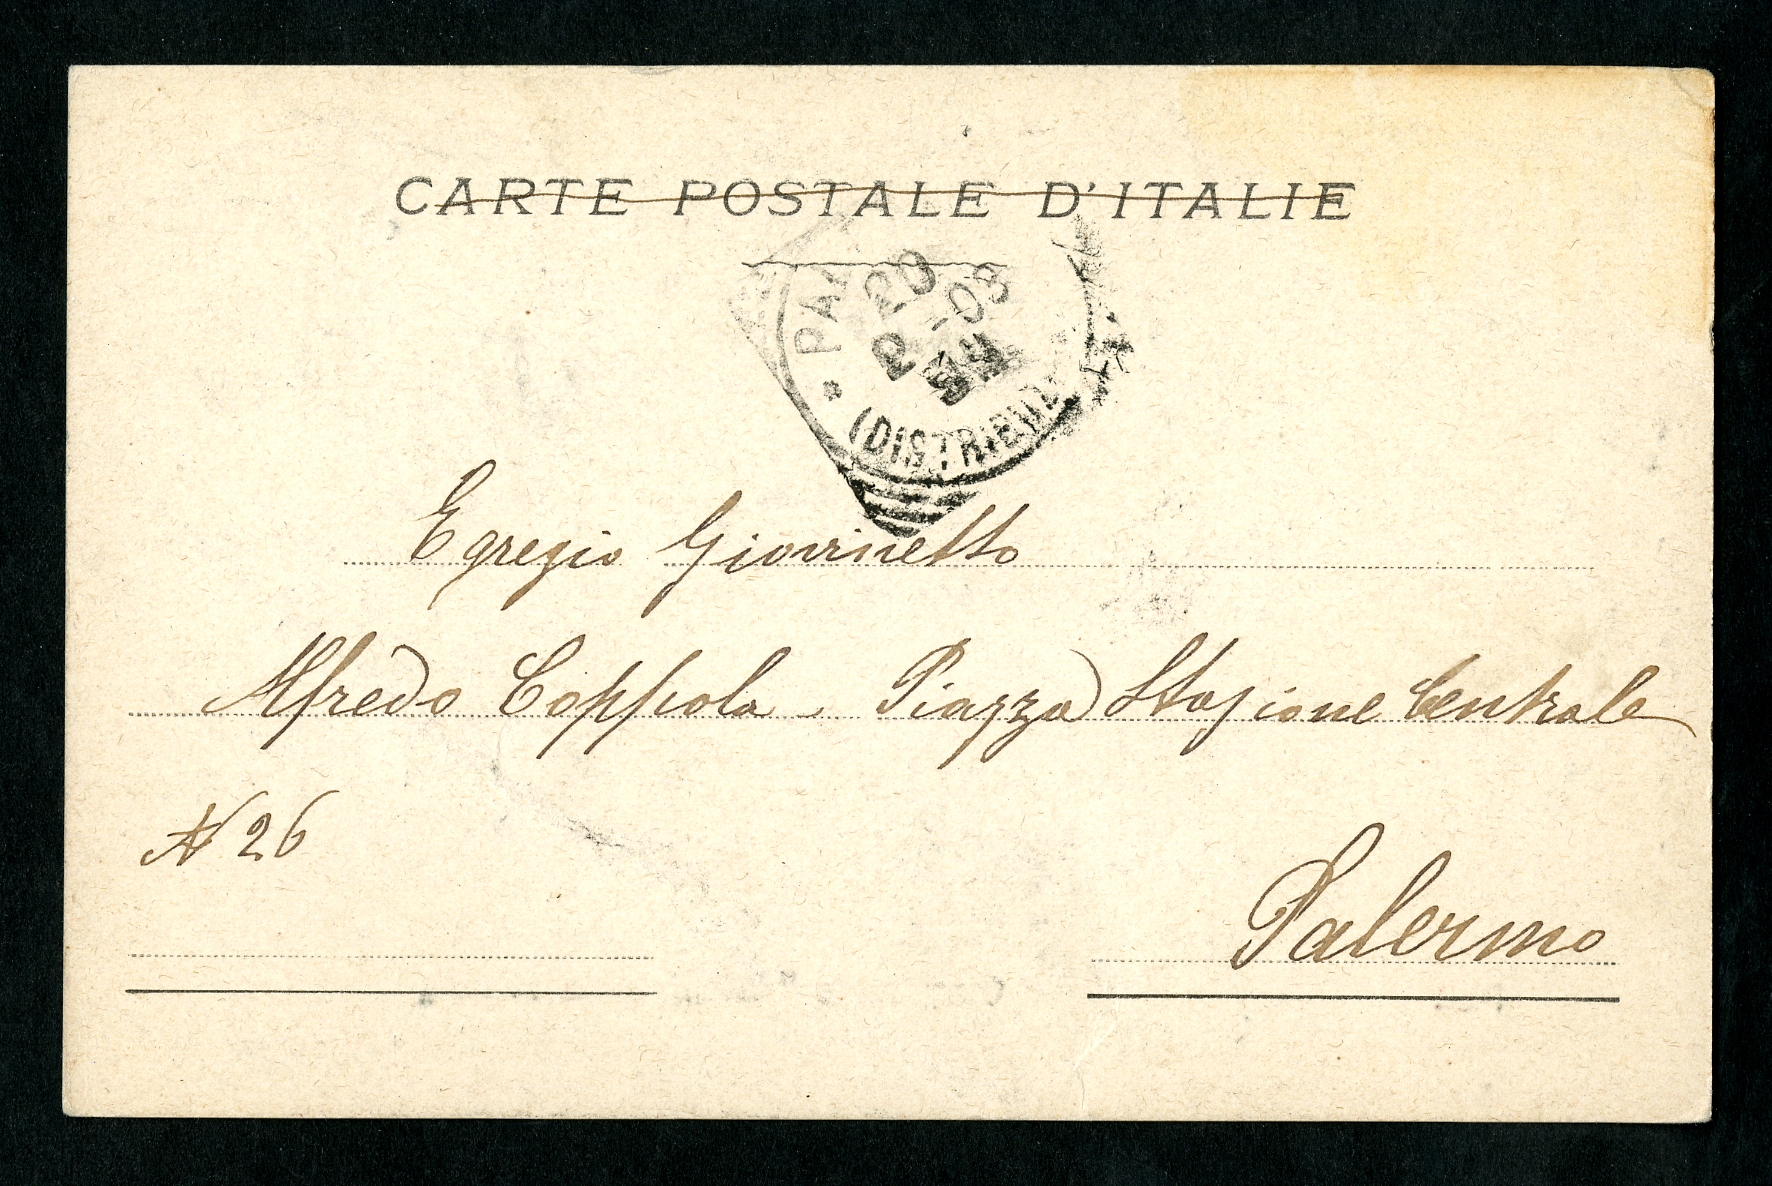 CARTE POSTALE D'ITALIE
20
2 - 03
Egregio Giovinetto
Alfredo Coppola - Piazza Stazione Centrale
N 26
Palermo